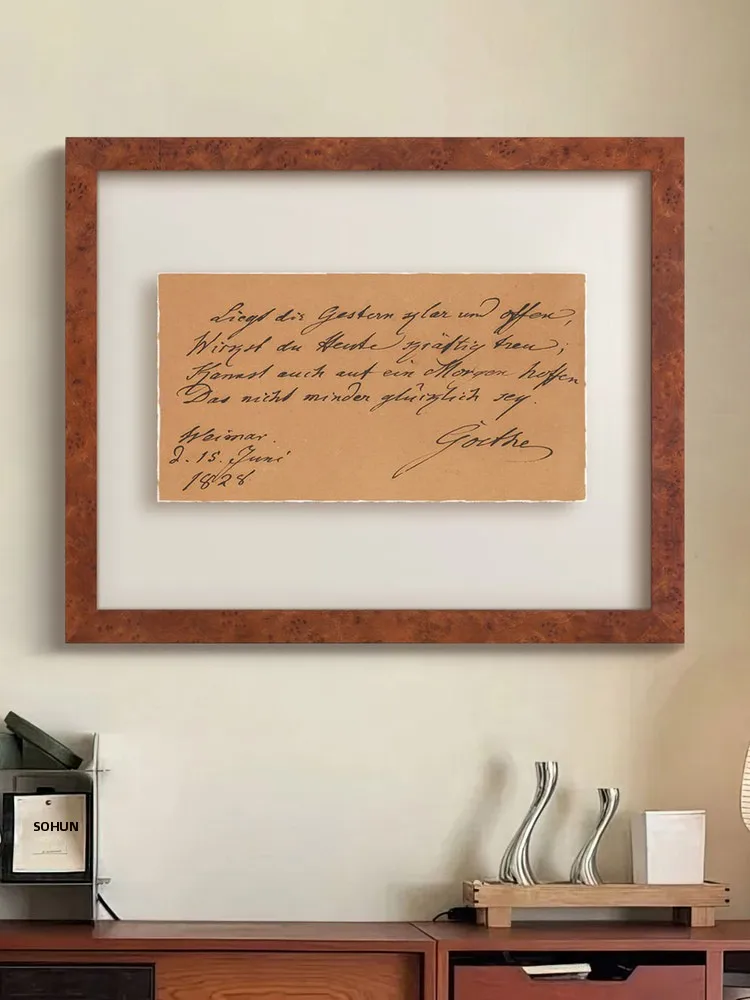 Liegt dir Gestern klar und offen,
Wirkst du Heute kräftig treu;
Kannst auch auf ein Morgen hoffen
Das nicht minder glücklich sey.
Weimar.
d. 15. Juni
1828
Goethe
SOHUN